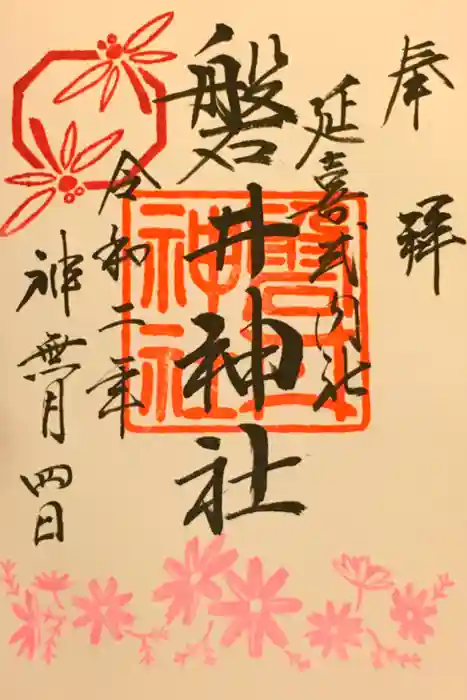 奉拝
延喜式内社
磐井神社
令和二年
神無月四日
磐井神社